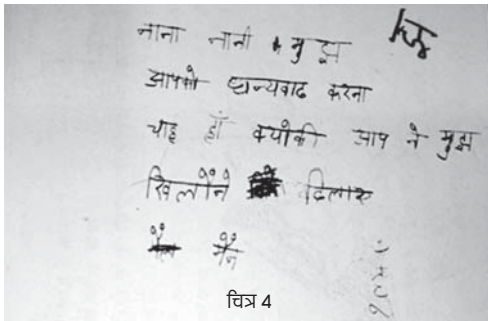 नाना नानी मुझ
आपको धन्यवाद करना
चाइ हाँ क्योकी आप ने मुझ
खिलौने दिलाए
मैंने
चित्र 4